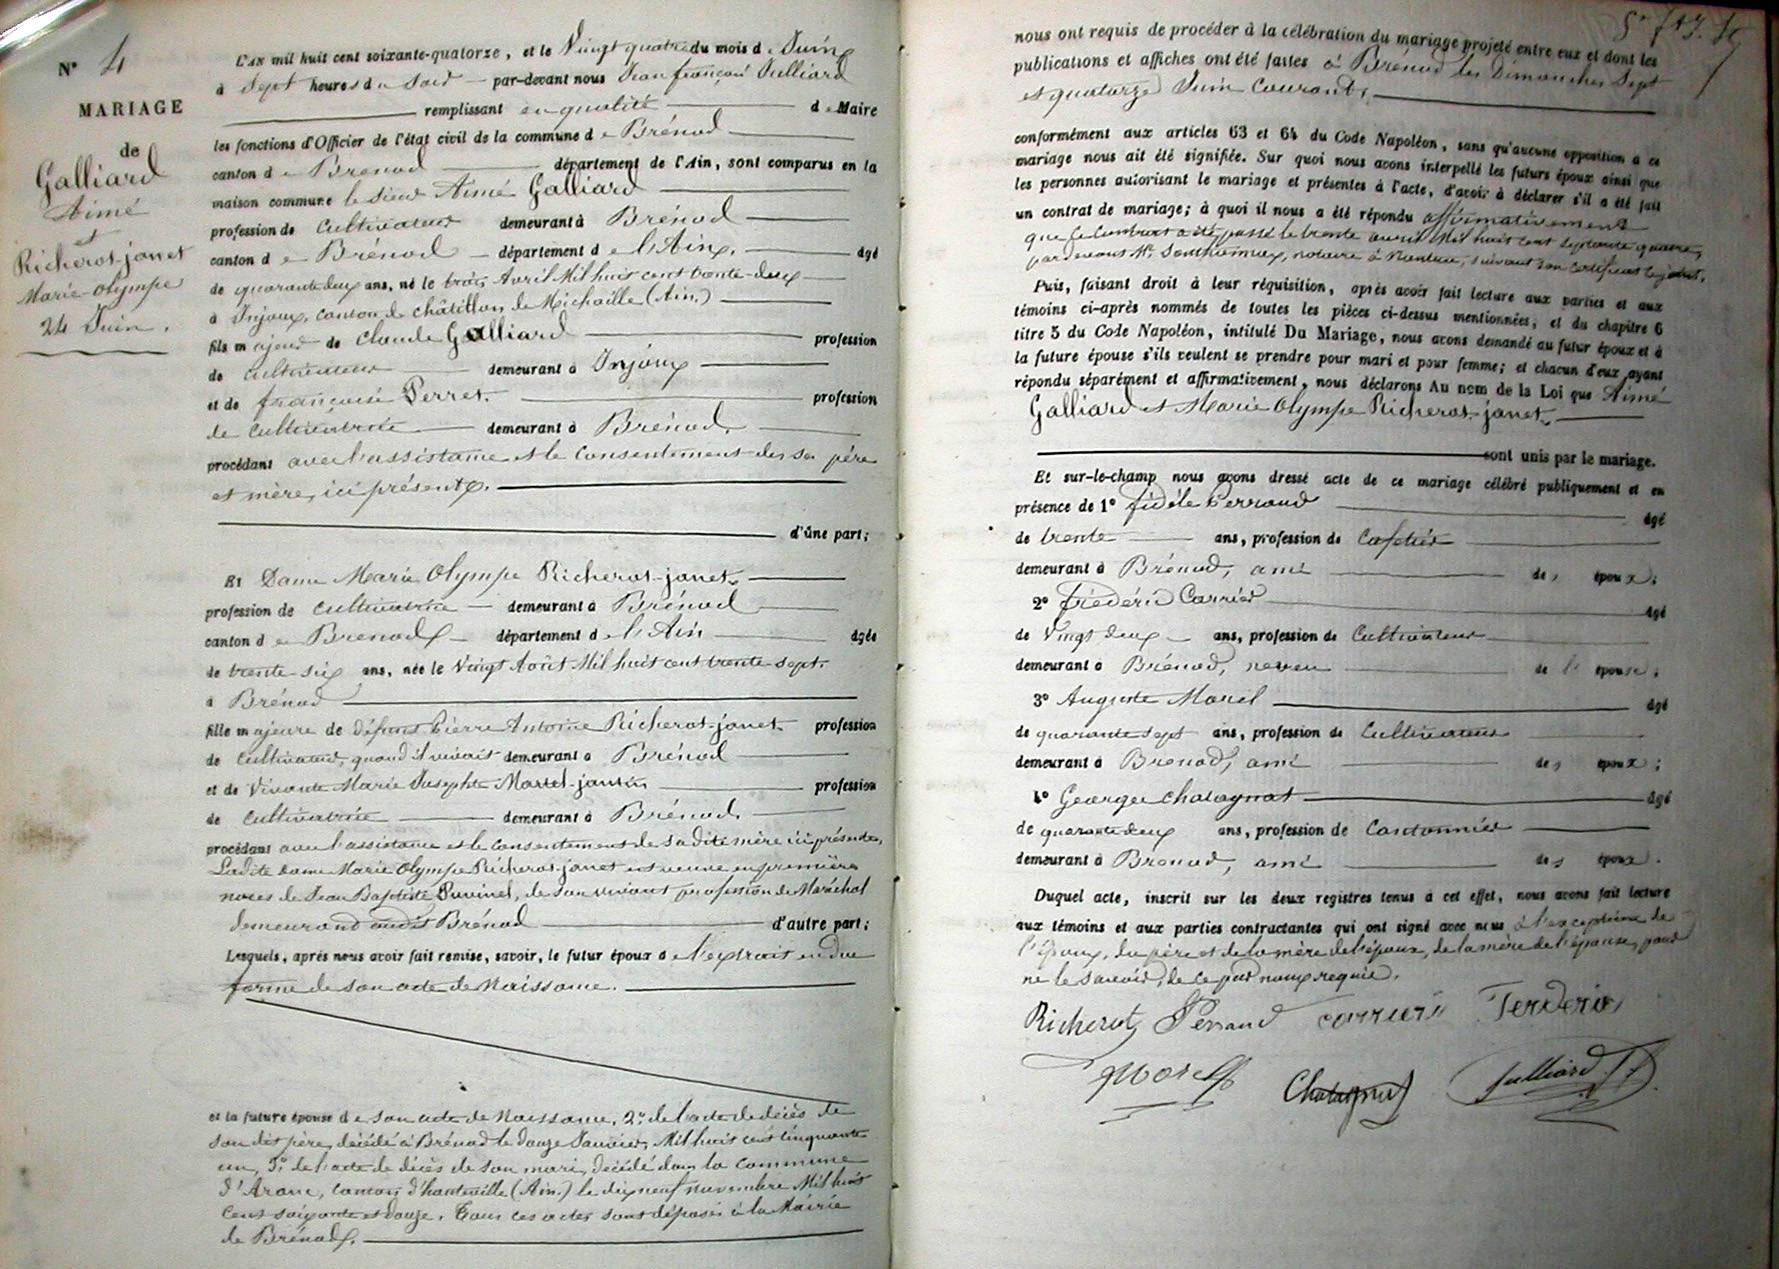 N° 4
MARIAGE
de
Galliard
Aimé
et
Richerot-janet
Marie Olympe
24 Juin.
L'AN mil huit cent soixante-quatorze, et le Vingt quatre du mois de Juin
à Sept heures du Soir par-devant nous Jean françois Julliard
remplissant en qualité de Maire
les fonctions d'Officier de l'état civil de la commune de Brénod
canton de Brénod département de l'Ain, sont comparus en la
maison commune le sieur Aimé Galliard
profession de Cultivateur demeurant à Brénod
canton de Brénod département de l'Ain, âgé
de quarante deux ans, né le trois Avril Mil huit cent trente-deux
à Injoux, canton de châtillon de Michaille (Ain.)
fils majeur de Claude Galliard profession
de cultivateur demeurant à Injoux
et de françoise Perret. profession
de Cultivatrice demeurant à Brénod.
procédant avec l'assistance et le consentement de ses père
et mère, ici présents.
d'une part;
Et Dame Marie Olympe Richerot-janet.
profession de cultivatrice demeurant à Brénod
canton de Brénod département de l'Ain âgée
de trente six ans, née le Vingt Août Mil huit cent trente-sept.
à Brénod
fille majeure de défunt Pierre Antoine Richerot-janet profession
de Cultivateur, quand il vivait demeurant à Brénod
et de Vivante Marie Josephte Martel-jantin profession
de Cultivatrice demeurant à Brénod.
procédant avec l'assistance et le consentement de sa dite mère ici présente,
Ladite dame Marie Olympe Richerot-janet est veuve en première
noces de Jean Baptiste de son vivant profession de Maréchal
demeurand audit Brénod d'autre part;
Lesquels, après nous avoir fait remise, savoir, le futur époux de l'extrait en due
forme de son acte de Naissance.
et la future épouse de son acte de Naissance, 2° de l'acte de décès de
son dit père, décédé à Brénod le douze Janvier, Mil huit cent cinquante
un, 3° de l'acte de décès de son mari, décédé dans la commune
d'Aranc, canton d'hauteville (Ain.) le dix neuf novembre Mil huit
cent soixante et douze. Tous ces actes sont déposés à la Mairie
de Brénod.
nous ont requis de procéder à la célébration du mariage projeté entre eux et dont les
publications et affiches ont été faites à Brénod les Dimanches Sept
et quatorze Juin Courant,
conformément aux articles 63 et 64 du Code Napoléon, sans qu'aucune opposition à ce
mariage nous ait été signifiée. Sur quoi nous avons interpellé les futurs époux ainsi que
les personnes autorisant le mariage et présentes à l'acte, d'avoir à déclarer s'il a été fait
un contrat de mariage; à quoi il nous a été répondu affirmativement
que ce Contrat a été passé le trente avril Mil huit cent septante quatre,
par devant Me. notaire à Nantua, suivant son certificat ci joint.
Puis, faisant droit à leur réquisition, après avoir fait lecture aux parties et aux
témoins ci-après nommés de toutes les pièces ci-dessus mentionnées, et du chapitre 6
titre 5 du Code Napoléon, intitulé Du Mariage, nous avons demandé au futur époux et à
la future épouse s'ils veulent se prendre pour mari et pour femme; et chacun d'eux ayant
répondu séparément et affirmativement, nous déclarons Au nom de la Loi que Aimé
Galliard et Marie Olympe Richerot-janet
sont unis par le mariage.
Et sur-le-champ nous avons dressé acte de ce mariage célébré publiquement et en
présence de 1° fidèle Perraud âgé
de trente ans, profession de Cafetier
demeurant à Brénod, ami des époux;
2° frédéric Carrier âgé
de Vingt deux ans, profession de Cultivateur
demeurant à Brénod, neveu de l'épouse;
3° Auguste Morel âgé
de quarante sept ans, profession de Cultivateur
demeurant à Brénod, ami des époux;
4° George Chatagnat âgé
de quarante deux ans, profession de Cantonnier
demeurant à Brénod, ami des époux.
Duquel acte, inscrit sur les deux registres tenus à cet effet, nous avons fait lecture
aux témoins et aux parties contractantes qui ont signé avec nous à l'exception de
l'époux, du père et de la mère de l'époux, de la mère de l'épouse, pour
ne le savoir, de ce par nous requis.
Richerot Perraud carrier
Morel Chatagnat Julliard